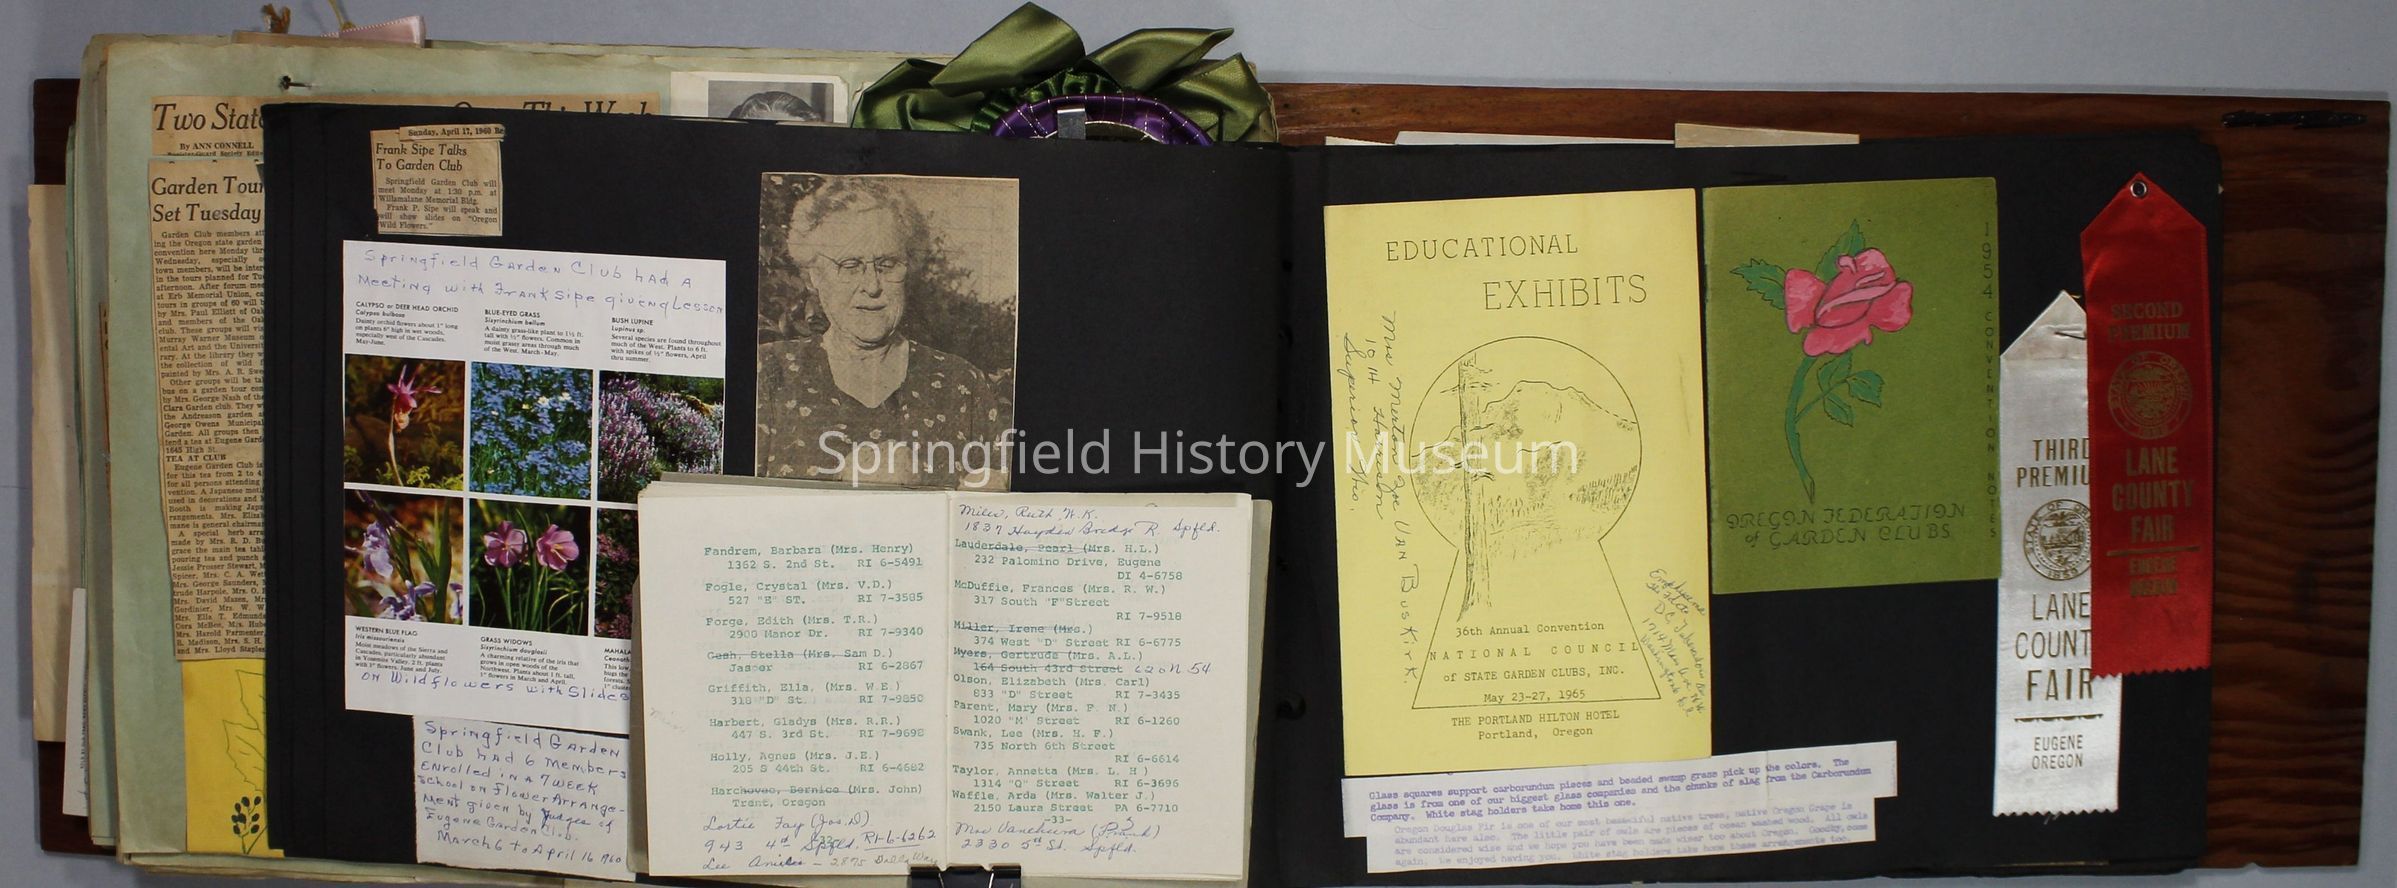 Two State
One This Week
By ANN CONNELL
Garden Tour
Set Tuesday
Garden Club members att
ing the Oregon state garden
convention here Monday thr
Wednesday, especially o
town members, will be inter
in the tours planned for Tu
afternoon. After forum mee
at Erb Memorial Union, ca
tours in groups of 60 will b
by Mrs. Paul Elliott of Oak
and members of the Oa
club. These groups will vis
Murray Warner Museum o
ental Art and the Universit
rary. At the library they w
the collection of wild f
painted by Mrs. A. R. Swe
Other groups will be tak
bus on a garden tour con
by Mrs. George Nash of the
Clara Garden club. They w
the Andreason garden a
George Owens Municipal
Garden. All groups then
tend a tea at Eugene Garde
1645 High St.
TEA AT CLUB
Eugene Garden Club is
for this tea from 2 to 4
for all persons attending
vention. A Japanese moti
used in decorations and
Booth is making Japa
rangements. Mrs. Eliza
mane is general chairman
A special herb arra
made by Mrs. R. D. Bu
grace the main tea tabl
pouring tea and punch a
Jessie Prosser Stewart, M
Spicer, Mrs. C. A. Wet
Mrs. George Saunders,
trude Harpole, Mrs. O.
Mrs. David Mazen, Mr
Gordinier, Mrs. W. W.
Mrs. Ella T. Edmunds
Cora McBee, Mrs. Hube
Mrs. Harold Parmenter
R. Madison, Mrs. S. H.
and Mrs. Lloyd Staples
Sunday, April 17, 1960 Re
Frank Sipe Talks
To Garden Club
Springfield Garden Club will
meet Monday at 1:30 p.m. at
Willamalane Memorial Bldg.
Frank P. Sipe will speak and
will show slides on "Oregon
Wild Flowers."
Springfield Garden Club had A
Meeting with Frank Sipe giveng Lesson
CALYPSO or DEER HEAD ORCHID
Calypso bulbosa
Dainty orchid flowers about 1" long
on plants 6" high in wet woods,
especially west of the Cascades.
May-June.
BLUE-EYED GRASS
Sisyrinchium bellum
A dainty grass-like plant to 1½ ft.
tall with ½" flowers. Common in
moist grassy areas through much
of the West. March-May.
BUSH LUPINE
Lupinus sp.
Several species are found throughout
much of the West. Plants to 6 ft.
with spikes of ½" flowers, April
thru summer.
WESTERN BLUE FLAG
Iris missouriensis
Moist meadows of the Sierra and
Cascades, particularly abundant
in Yosemite Valley. 2 ft. plants
with 1" flowers. June and July.
GRASS WIDOWS
Sisyrinchium douglasii
A charming relative of the iris that
grows in open woods of the
Northwest. Plants about 1 ft. tall,
1" flowers in March and April.
MAHALA
Ceanoth
This low
hugs the
forests.
1" cluste
on Wildflowers with Slides
Springfield Garden
Club had 6 Members
Enrolled in A 7 week
School on Flower Arrange-
Ment given by Judges of
Eugene Garden Club.
March 6 to April 16 1960
Fandrem, Barbara (Mrs. Henry)
1362 S. 2nd St. RI 6-5491
Fogle, Crystal (Mrs. V.D.)
527 "E" ST. RI 7-3585
Forge, Edith (Mrs. T.R.)
2900 Manor Dr. RI 7-9340
Gesh, Stella (Mrs. Sam D.)
Jasper RI 6-2867
Griffith, Ella, (Mrs. W.E.)
318 "D" St. RI 7-9850
Harbert, Gladys (Mrs. R.R.)
447 S. 3rd St. RI 7-9698
Holly, Agnes (Mrs. J.E.)
205 S 44th St. RI 6-4682
Harchovec, Bernice (Mrs. John)
Trent, Oregon
Lortie Fay (Jos. D)
943 4th Spfld. RI-6-6262
Lee - 2895
Miles, Ruth W.K.
1837 Hayden Bredge R. Spfld.
Lauderdale, Pearl (Mrs. H.L.)
232 Palomino Drive, Eugene
DI 4-6758
McDuffie, Frances (Mrs. R. W.)
317 South "F"Street
RI 7-9518
Miller, Irene (Mrs.)
374 West "D" Street RI 6-6775
Myers, Gertrude (Mrs. A.L.)
164 South 43rd Street 620 N 54
Olson, Elizabeth (Mrs. Carl)
833 "D" Street RI 7-3435
Parent, Mary (Mrs. F. N.)
1020 "M" Street RI 6-1260
Swank, Lee (Mrs. H. F.)
735 North 6th Street
RI 6-6614
Taylor, Annetta (Mrs. L. H )
1314 "Q" Street RI 6-3696
Waffle, Arda (Mrs. Walter J.)
2150 Laura Street PA 6-7710
-33-
Mrs Vancheura (Frank)
2330 5th St. Spfld.
Springfield History Museum
EDUCATIONAL
EXHIBITS
Mrs Merton Joe Van Buskirk.
1014 Harrison
Superior Wio.
36th Annual Convention
NATIONAL COUNCIL
of STATE GARDEN CLUBS, INC.
May 23-27, 1965
THE PORTLAND HILTON HOTEL
Portland, Oregon
Glass squares support carborundum pieces and beaded swamp grass pick up the colors. The
glass is from one of our biggest glass companies and the chunks of slag from the Carborundum
Company. White stag holders take home this one.
Oregon Douglas Fir is one of our most beautiful native trees, native Oregon Grape is
abundant here also. The little pair of owls are pieces of ocean washed wood. All owls
are considered wise and we hope you have been made wiser too about Oregon. Goodby, come
again. We enjoyed having you. White stag holders take home these arrangements too.
1954 CONVENTION NOTES
OREGON FEDERATION
of GARDEN CLUBS
THIRD
PREMIU
STATE OF OREGON
1859
LANE
COUNT
FAIR
EUGENE
OREGON
SECOND
PREMIUM
STATE OF OREGON
1859
LANE
COUNTY
FAIR
EUGENE
OREGON